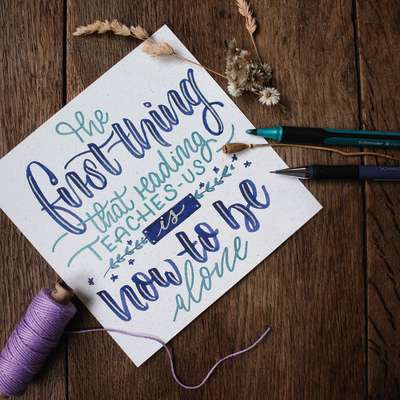 the
first thing
that reading
TEACHES US
is
how to be
alone